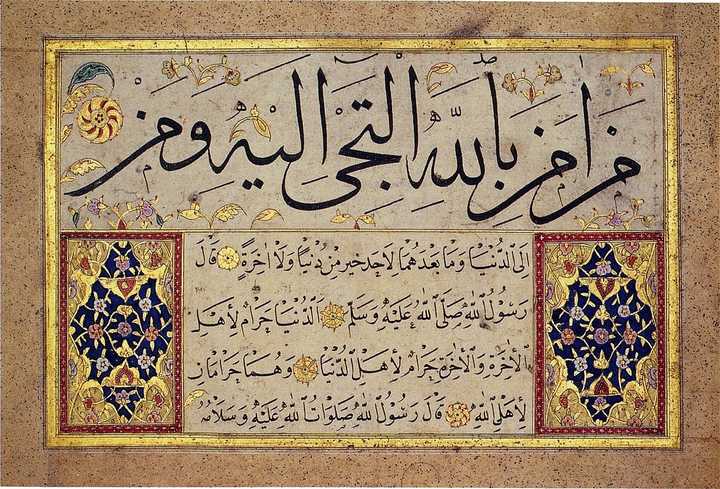 من امن بالله التجى اليه ومن
الى الدُّنْيَا وَمَا بَعْدَهُمَا لِاَحَدٍ خَيْرٌ مِنْ دُنْيَا وَلَا اٰخِرَةٍ قَالَ
رَسُولُ اللهِ صَلَّى اللهُ عَلَيْهِ وَسَلَّمَ اَلدُّنْيَا حَرَامٌ لِاَهْلِ
الْاٰخِرَةِ وَالْاٰخِرَةُ حَرَامٌ لِاَهْلِ الدُّنْيَا وَهُمَا حَرَامَانِ
لِاَهْلِ اللهِ قَالَ رَسُولُ اللهِ صَلَوَاتُ اللهِ عَلَيْهِ وَسَلَامُهُ